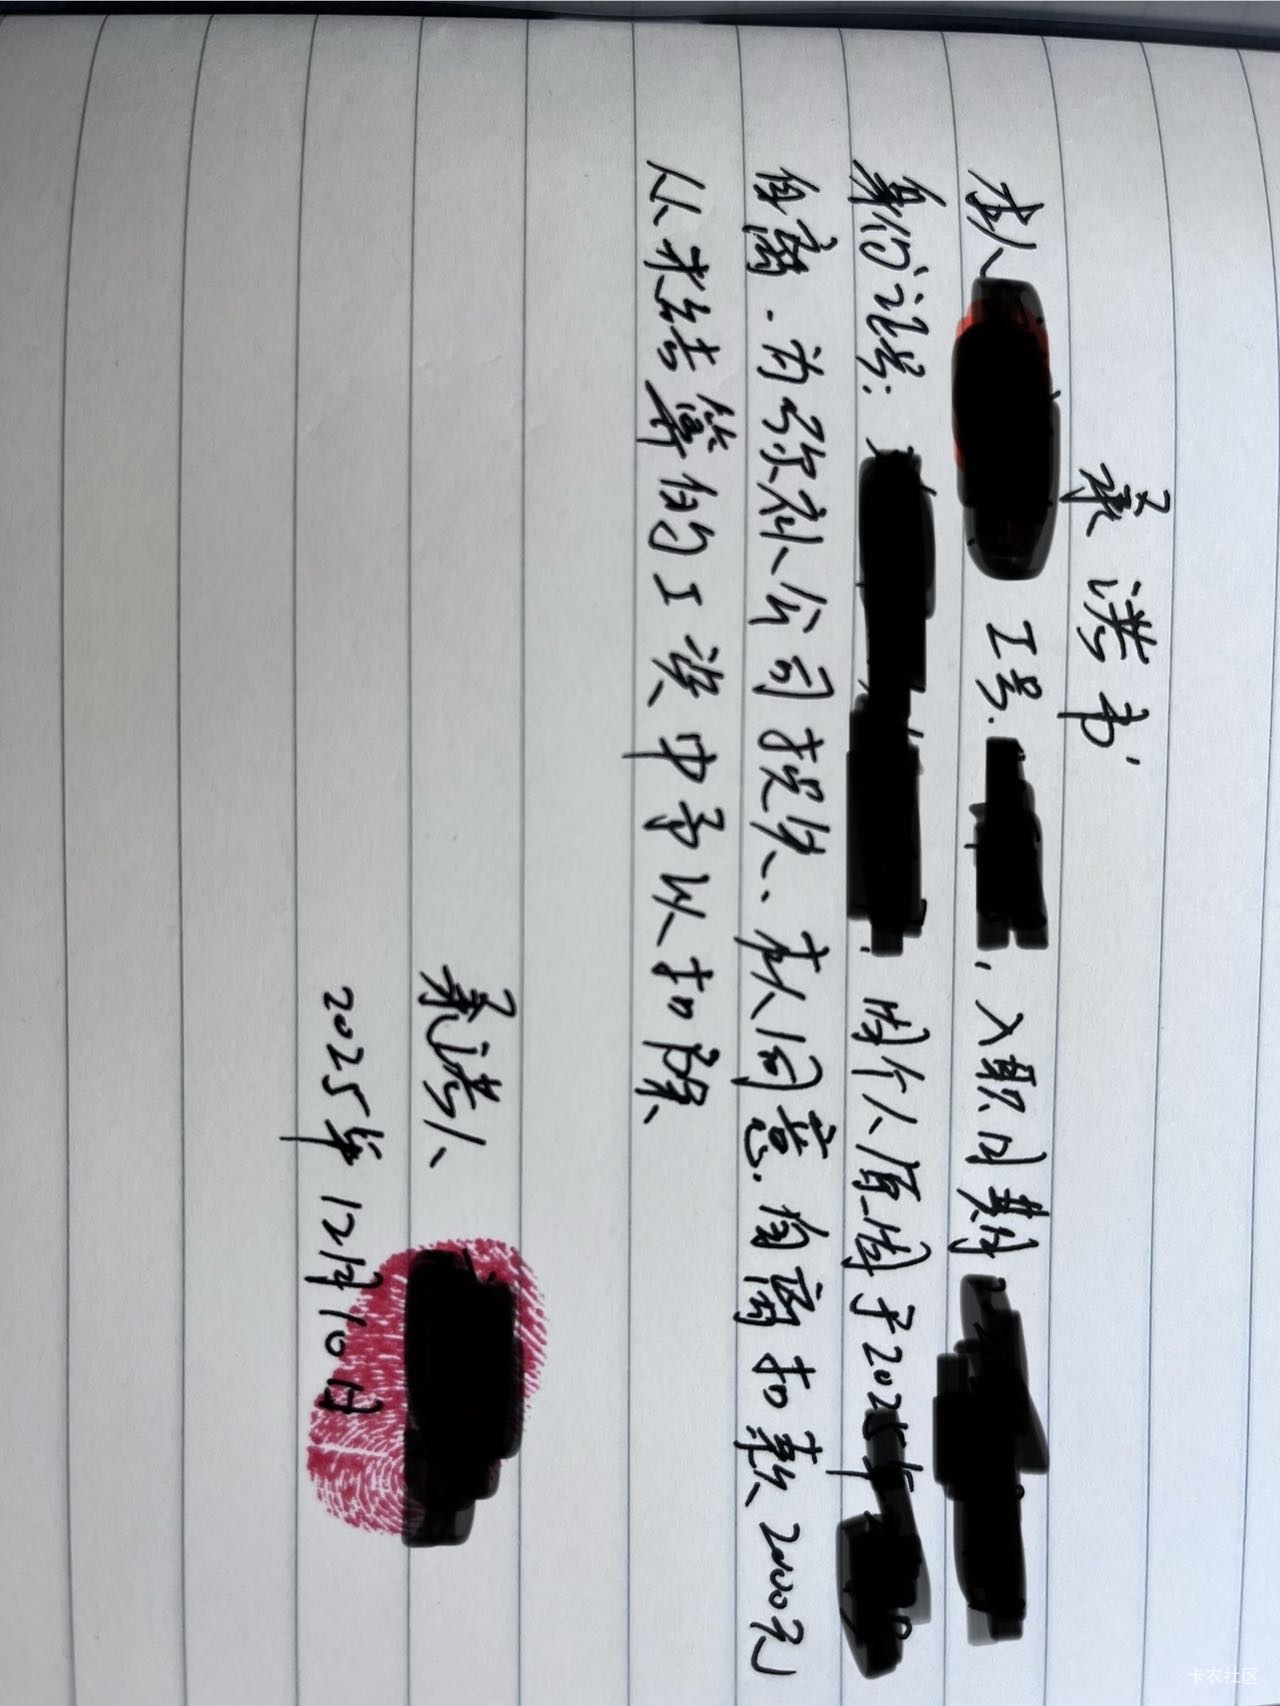 承诺书
本人 工号. ,入职日期
身份证号: .因个人原因于2025年
自离.为弥补公司损失.本人同意.自离扣款2000元
从未结算的工资中予以扣除
承诺人
2025年12月10日
卡农社区